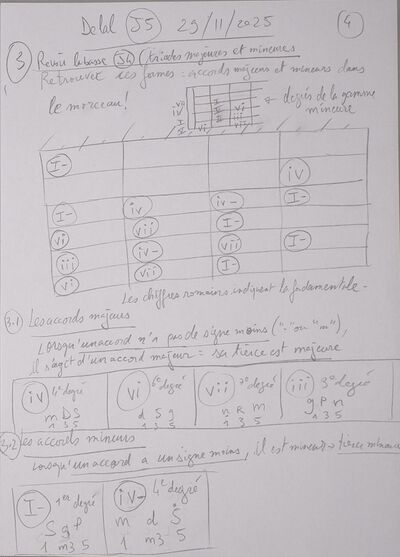 Delal J5 29/11/2025 4
3 Revoir la base J4 (triades majeures et mineures
Retrouver ces formes : accords majeurs et mineurs dans
le morceau!
degrés de la gamme
mineure
I-
iv
I- iv iv- I-
vi vii I-
iii iv- vii I-
vi vii I-
Les chiffres romains indiquent la fondamentale -
3.1) Les accords majeurs
Lorsqu'un accord n'a pas de signe moins ("-" ou "m"),
Il s'agit d'un accord majeur = sa tierce est majeure
iv 4e degré vi 6e degré vii 7e degré iii 3e degré
m D S d S g n R m g P n
1 3 5 1 3 5 1 3 5 1 3 5
3.2 Les accords mineurs
Lorsqu'un accord a un signe moins, il est mineur → tierce mineure
I- 1er degré iv- 4e degré
S g P m d S
1 m3 5 1 m3 5